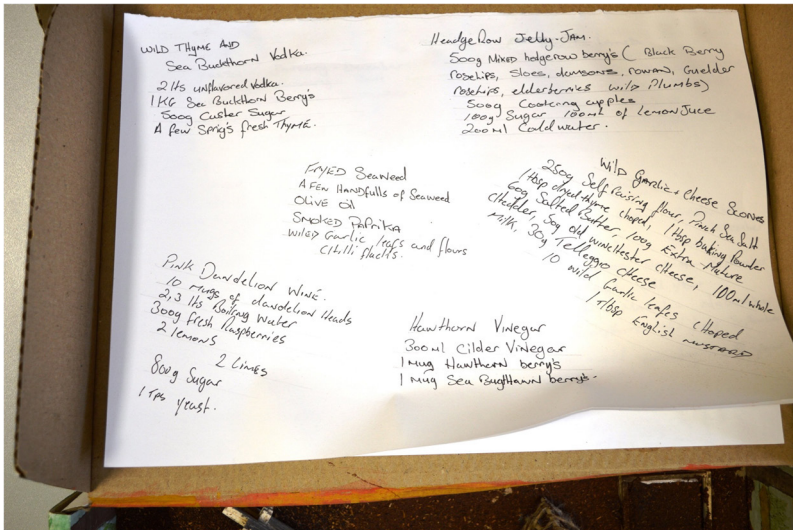 WILD THYME AND
Sea Buckthorn Vodka.
2 lts unflavored Vodka.
1 KG Sea Buckthorn Berry's
500g Custer Sugar
A few Sprig's fresh THYME.
Headge Row Jelly-JAM.
500g Mixed hedgerow berry's ( Black Berry
rosehips, sloes, damsons, rowan, Guelder
rosehips, elderberries wild Plumbs)
500g Cooking apples
100g Sugar 100ml of Lemon Juce
200ml Cold water.
FRYED Seaweed
A FEW HANDfulls of Seaweed
OLIVE Oil
SMOKED PAPRIKA
WILED Garlic leafs and flours
Chilli flacks.
Wild Garlic + Cheese Scones
250g Self Raising flour, Pinch Sea Salt
1 tbsp dryed thyme choped, 1 tbsp baking Powder
60g Salted Butter, 100g Extra Mature
Chedder, 50g old Winchester Cheese, 100ml whole
Milk, 30g Telleggio cheese
10 wild Garlic leafes CHoped
1 Tbsp English mustard
Pink Dandelion Wine.
10 mugs of dandelion Heads
2,3 lts Boiling Water
300g fresh Raspberries
2 lemons
2 Limes
800g Sugar
1 TPS yeast.
Hawthorn Vinegar
300ml Cilder Vinegar
1 Mug Hawthorn berry's
1 Mug Sea Bugthawn berry's.